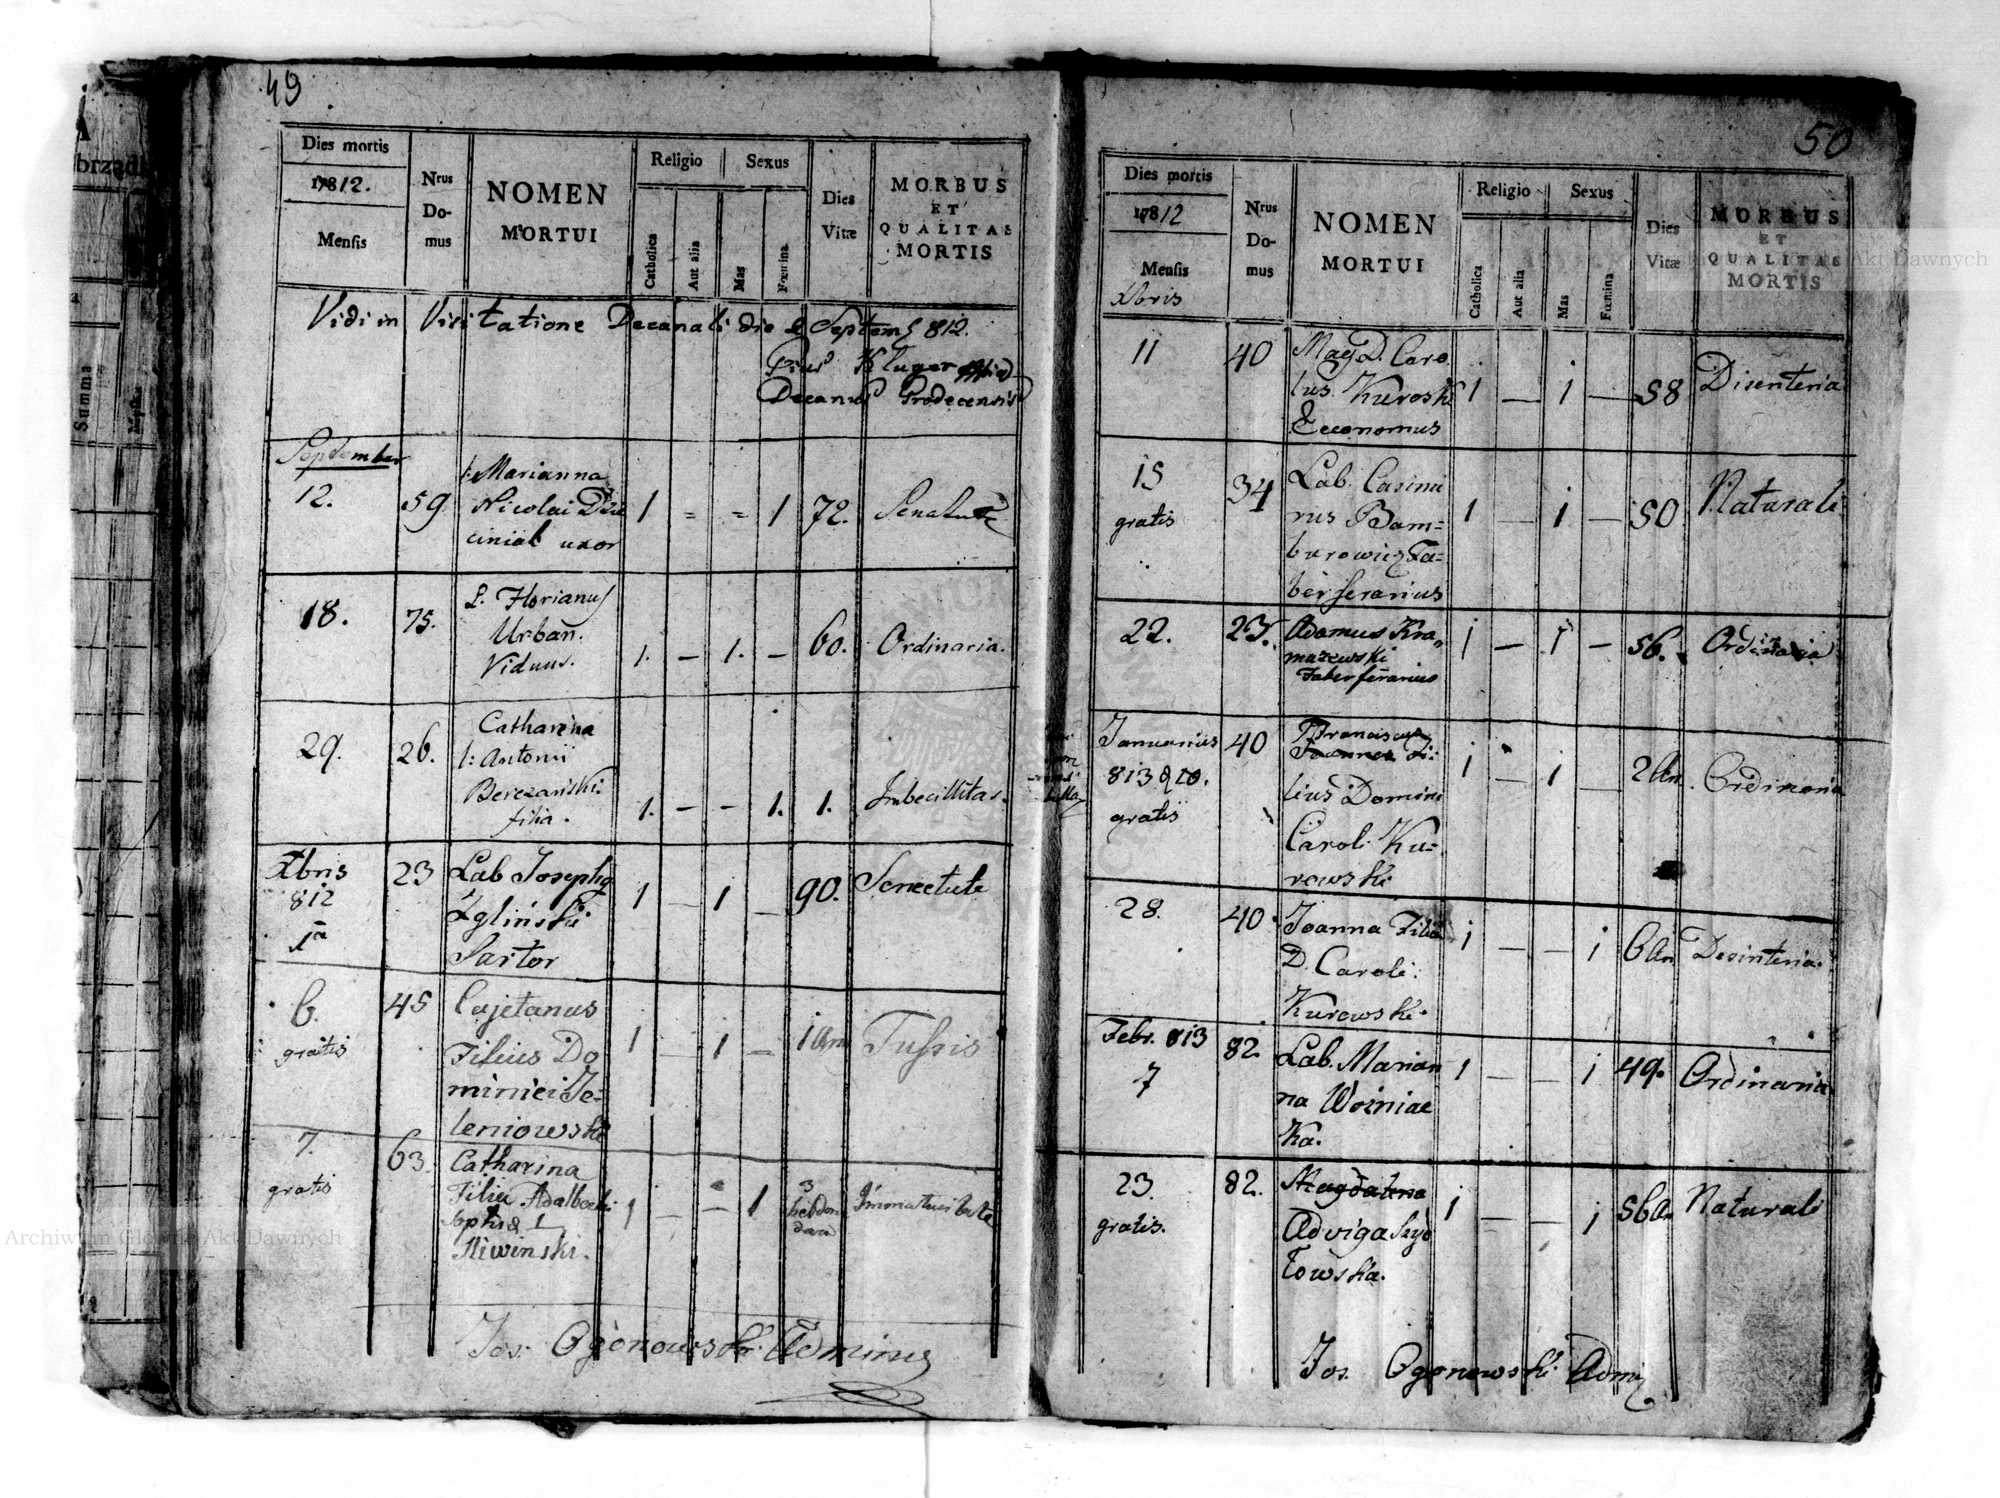 49
Dies mortis
17812.
Mensis
Nrus
Do-
mus
NOMEN
MORTUI
Religio
Sexus
Catholica
Aut alia
Mas
Fœmina
Dies
Vitæ
MORBUS
ET
QUALITAS
MORTIS
Vidi in Visitatione Decanali die Septem 812.
Pius Kluger
Decanus Grodecensis
September
12.
59
Marianna
Nicolai
uxor
1 = = 1 72.
18.
75.
L. Florianus
Urban.
Viduus.
1. — 1. — 60. Ordinaria.
29.
26.
Catharina
Antonii
Berezański
filia.
1. — — 1. 1. Imbecillitas.
Xbris
812
1a
23
Lab Josephq
Zgliński
Sartor
1 — 1 — 90. Senectute
6.
gratis
45
Cajetanus
Filius Do
minici Je-
leniowski
1 — 1 — 1 Ann Tussis
7.
gratis
63.
Catharina
Filia Adalberti
Sophi &
Sliwinski.
1 — — 1 3
hebdom
dara
Immaturitate
Jos. Ogonowski Adminus
50
Dies mortis
17812
Mensis
Xbris
Nrus
Do-
mus
NOMEN
MORTUI
Religio
Sexus
Catholica
Aut alia
Mas
Fœmina
Dies
Vitæ
MORBUS
ET
QUALITAS
MORTIS
11
40
Mag D. Caro
lus Kuroski
Economus
1 — 1 — 58 Disenteria
15
gratis
34
Lab. Casimi
rus Bam=
burowicz Fa=
ber ferarius
1 — 1 — 50 Naturali
22.
23.
Adamus Kra
mazewski
Faber ferarius
1 — 1 — 56. Ordinaria
Januarius
813 d 10.
gratis
40
Franciscus
Joannes Fi:
lius Domini
Caroli Ku=
rowski
1 — 1 — 2 An. Ordinaria
28.
40.
Joanna Filia
D. Caroli
Kurowski.
1 — — 1 6 An Desinteria.
Febr. 813
7
82.
Lab. Marian
na Wozniac
ka.
1 — — 1 49. Ordinaria
23.
gratis.
82.
Magdalena
Adviga Szyd
lowska.
1 — — 1 56 A. Naturali
Jos. Ogonowski Admi
Summa
Archiwum Główne Akt Dawnych
Akt Dawnych